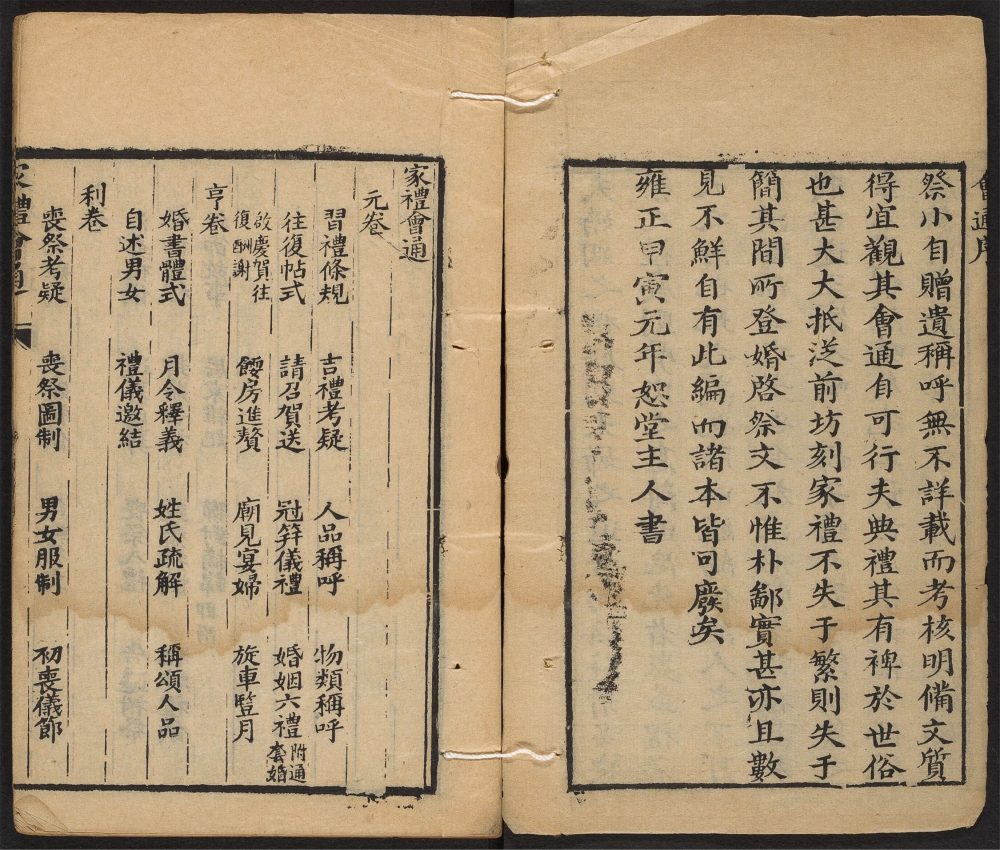 會通序
祭小自贈遺稱呼無不詳載而考核明備文質
得宜觀其會通自可行夫典禮其有裨於世俗
也甚大大抵泛前坊刻家禮不失于繁則失于
簡其間所登婚啓祭文不惟朴鄙實甚亦且數
見不鮮自有此編而諸本皆可廢矣
雍正甲寅元年恕堂主人書
家禮會通
元卷
習禮條規 吉禮考疑 人品稱呼 物類稱呼
往復帖式 請召賀送 冠笄儀禮 婚姻六禮 附通套婚
啟慶賀往復酬謝 餪房進贅 廟見宴婦 旋車暨月
亨卷
婚書體式 月令釋義 姓氏疏解 稱頌人品
自述男女 禮儀邀結
利卷
喪祭考疑 喪祭圖制 男女服制 初喪儀節
家禮會通